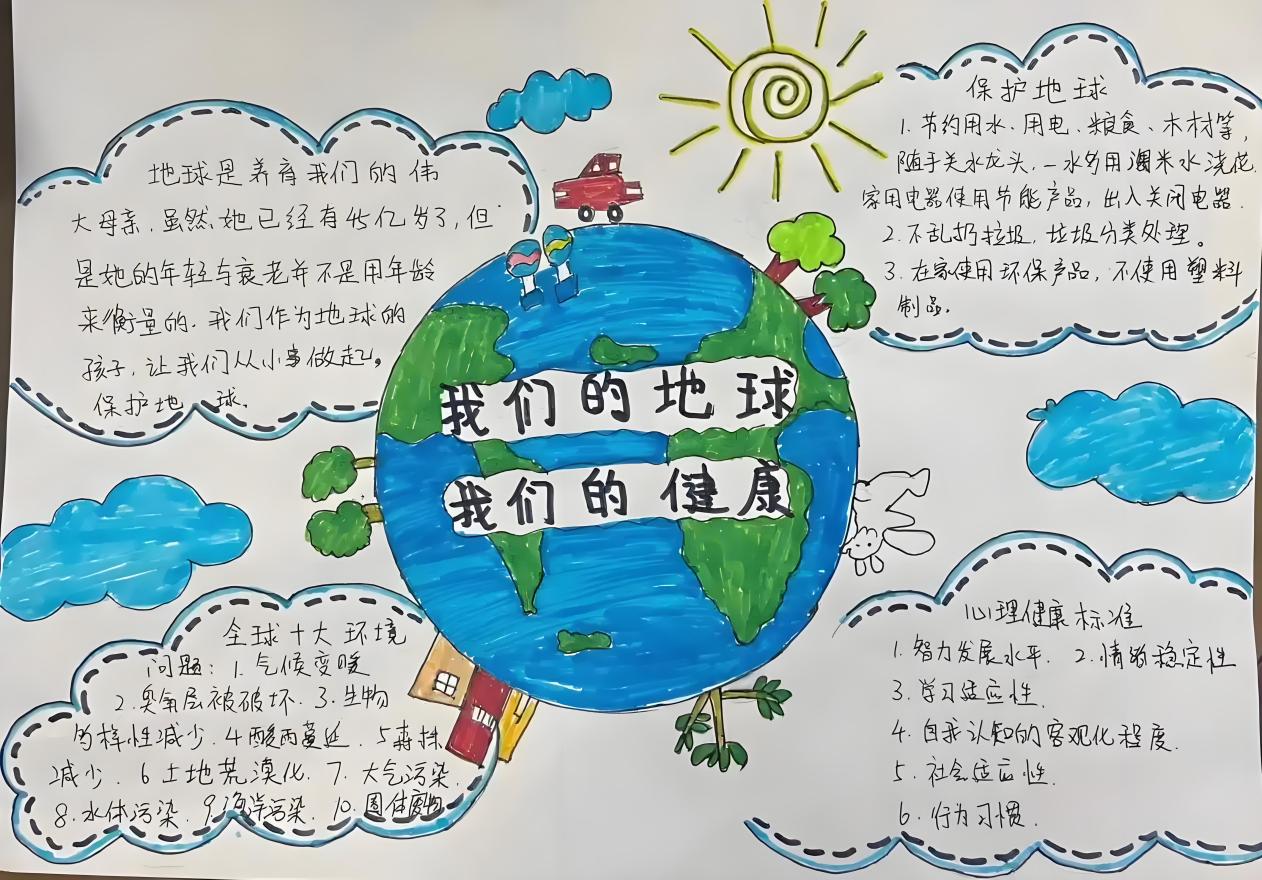 我们的地球
我们的健康
地球是养育我们的伟
大母亲.虽然她已经有45亿岁了,但
是她的年轻与衰老并不是用年龄
来衡量的.我们作为地球的
孩子,让我们从小事做起。
保护地球.
保护地球
1.节约用水、用电、粮食、木材等,
随手关水龙头,一水多用淘米水浇花.
家用电器使用节能产品,出入关闭电器.
2.不乱扔垃圾,垃圾分类处理。
3.在家使用环保产品,不使用塑料
制品.
全球十大环境
问题:1.气候变暖
2.臭氧层被破坏.3.生物
多样性减少.4酸雨蔓延.5森林
减少.6土地荒漠化.7.大气污染.
8.水体污染.9.海洋污染.10.固体废物
心理健康标准
1.智力发展水平.2.情绪稳定性
3.学习适应性.
4.自我认知的客观化程度.
5.社会适应性.
6.行为习惯.